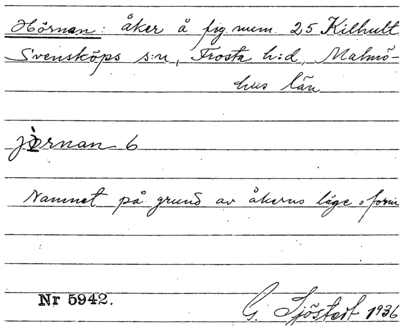 Hörnan: åker å fig.num. 25 Kilhult
Svensköps s:n, Frosta h:d, Malmö-
hus län
Namnet på grund av åkerns läge o form
Nr 5942.
G. Sjöstedt 1936